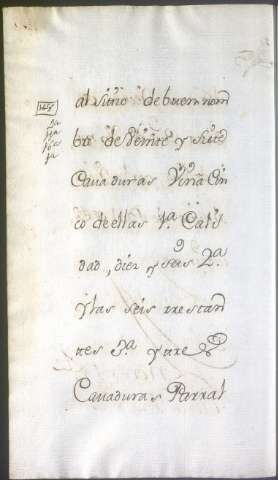 al sitio de buen nom
bre de Veinte y siete
Cavaduras Viña Cin
co de ellas 1ª Cali
dad, diez y seis 2ª
y las seis restan
tes 3ª y tres
Cavaduras Parral